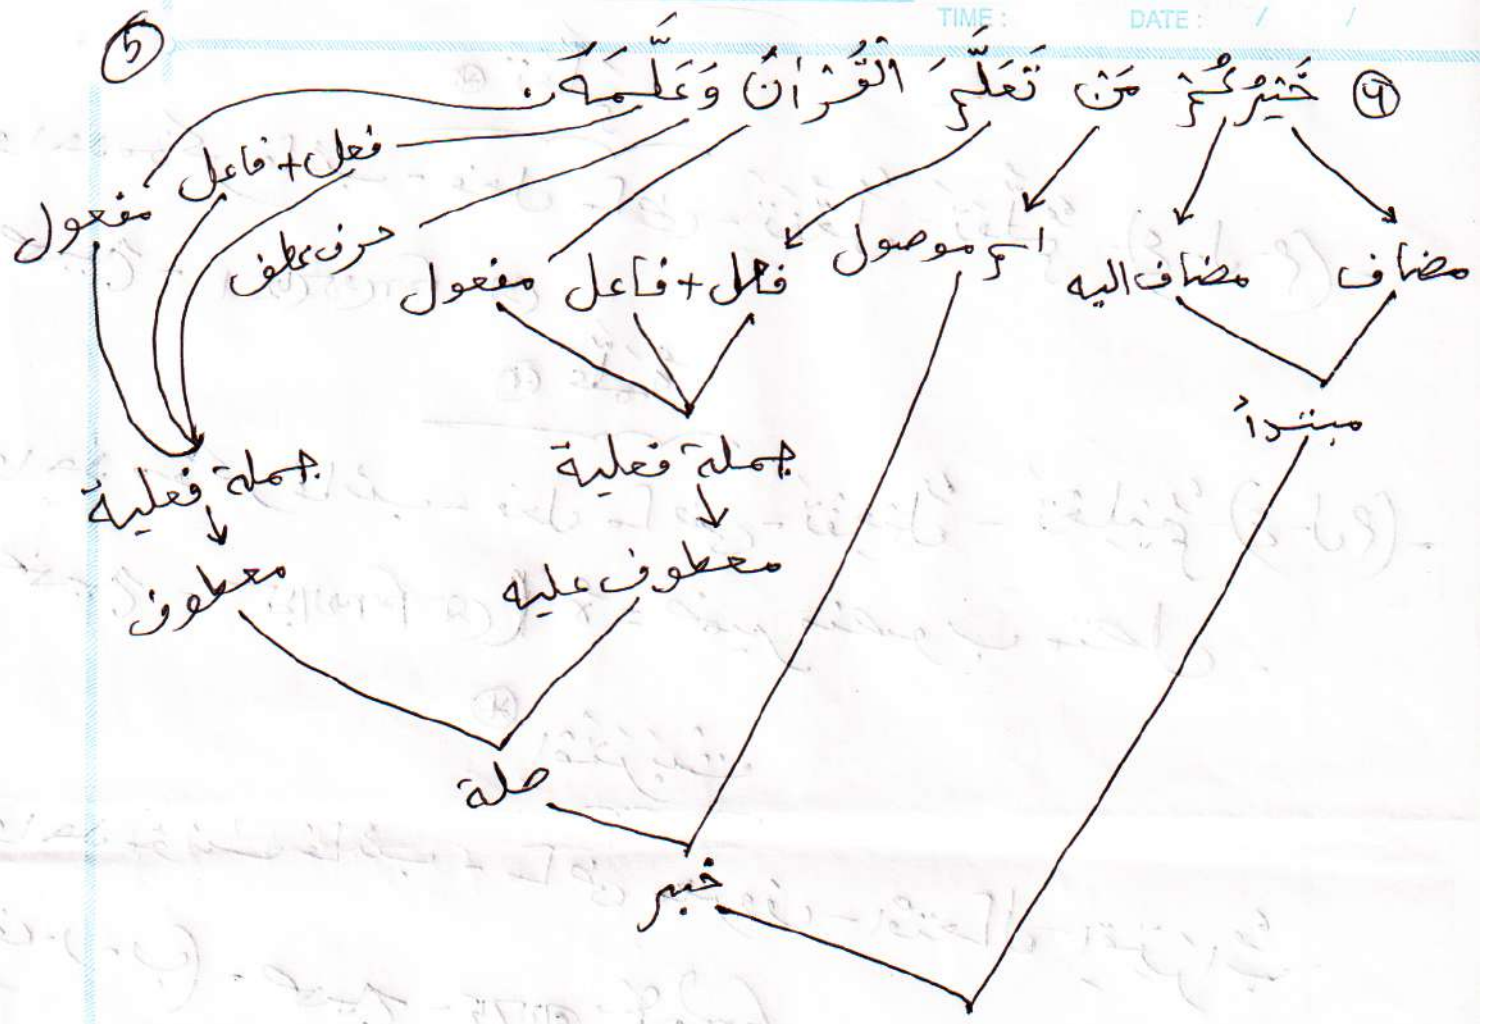 TIME : DATE : / /
خَيْرُكُمْ مَنْ تَعَلَّمَ الْقُرْاٰنَ وَعَلَّمَهٗ
مضاف مضاف اليه اسم موصول فعل + فاعل مفعول حرف عطف فعل + فاعل مفعول
مبتدأ
جملة فعلية جملة فعلية
معطوف عليه معطوف
صلة
خبر